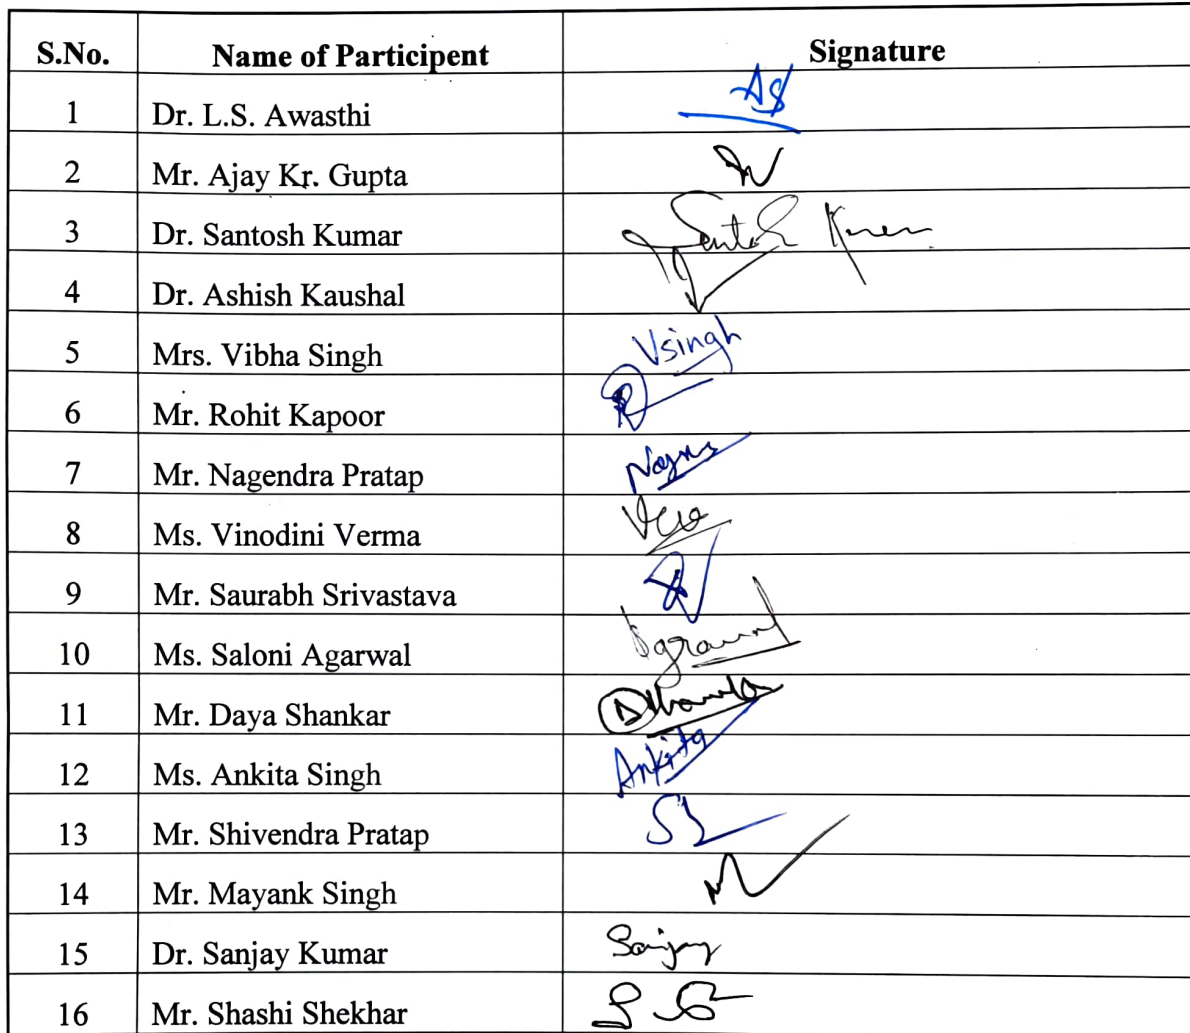 S.No. Name of Participent Signature
1 Dr. L.S. Awasthi AS
2 Mr. Ajay Kr. Gupta
3 Dr. Santosh Kumar Santosh Kumar
4 Dr. Ashish Kaushal
5 Mrs. Vibha Singh Vsingh
6 Mr. Rohit Kapoor
7 Mr. Nagendra Pratap
8 Ms. Vinodini Verma
9 Mr. Saurabh Srivastava
10 Ms. Saloni Agarwal
11 Mr. Daya Shankar
12 Ms. Ankita Singh Ankita
13 Mr. Shivendra Pratap
14 Mr. Mayank Singh
15 Dr. Sanjay Kumar Sanjay
16 Mr. Shashi Shekhar